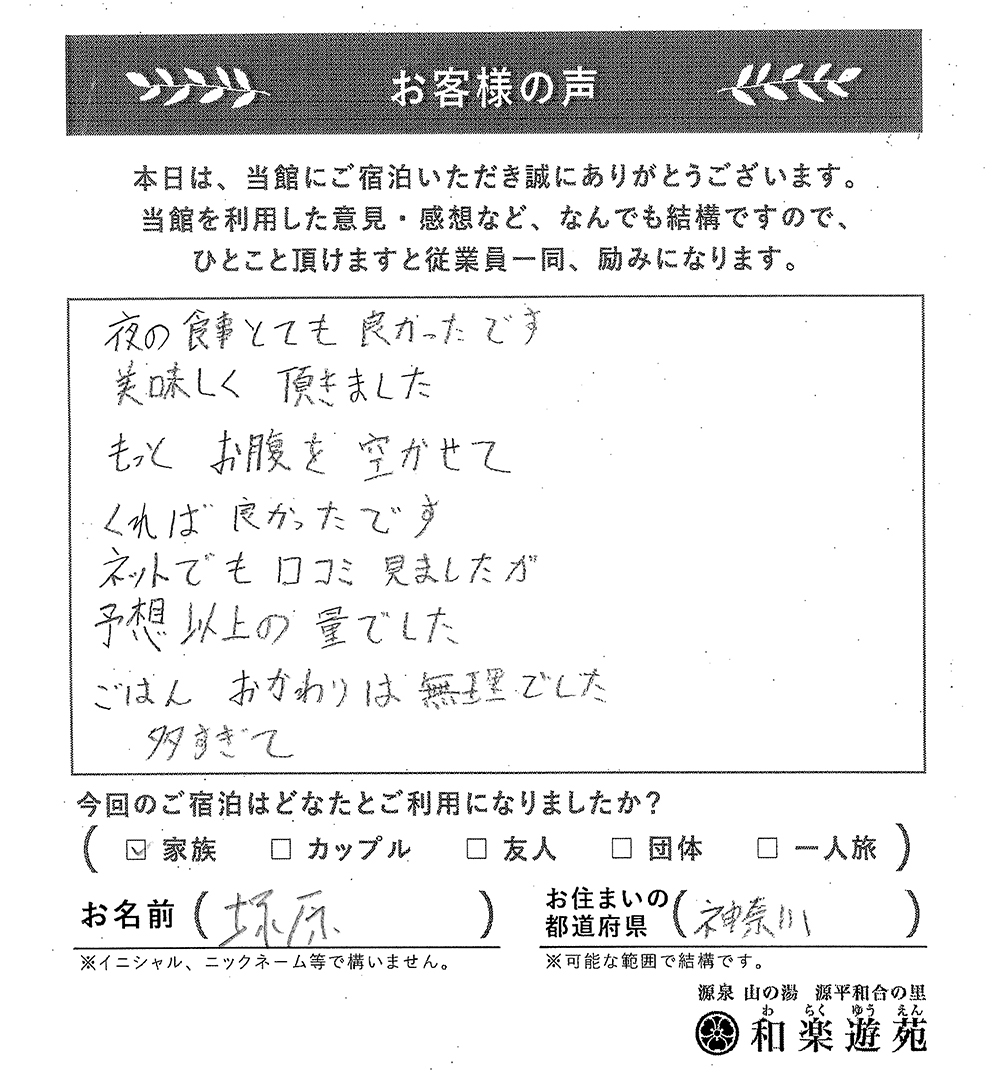 お客様の声
本日は、当館にご宿泊いただき誠にありがとうございます。
当館を利用した意見・感想など、なんでも結構ですので、
ひとこと頂けますと従業員一同、励みになります。
夜の食事とても 良かったです
美味しく 頂きました
もっと お腹を 空かせて
くれば 良かったです
ネットでも 口コミ 見ましたが
予想以上の 量でした
ごはん おかわりは 無理でした
多すぎて
今回のご宿泊はどなたとご利用になりましたか?
( ☑ 家族 □ カップル □ 友人 □ 団体 □ 一人旅 )
お名前 ( 塚原 )
※イニシャル、ニックネーム等で構いません。
お住まいの都道府県 ( 神奈川 )
※可能な範囲で結構です。
源泉 山の湯 源平和合の里
わ らく ゆう えん
和楽遊苑